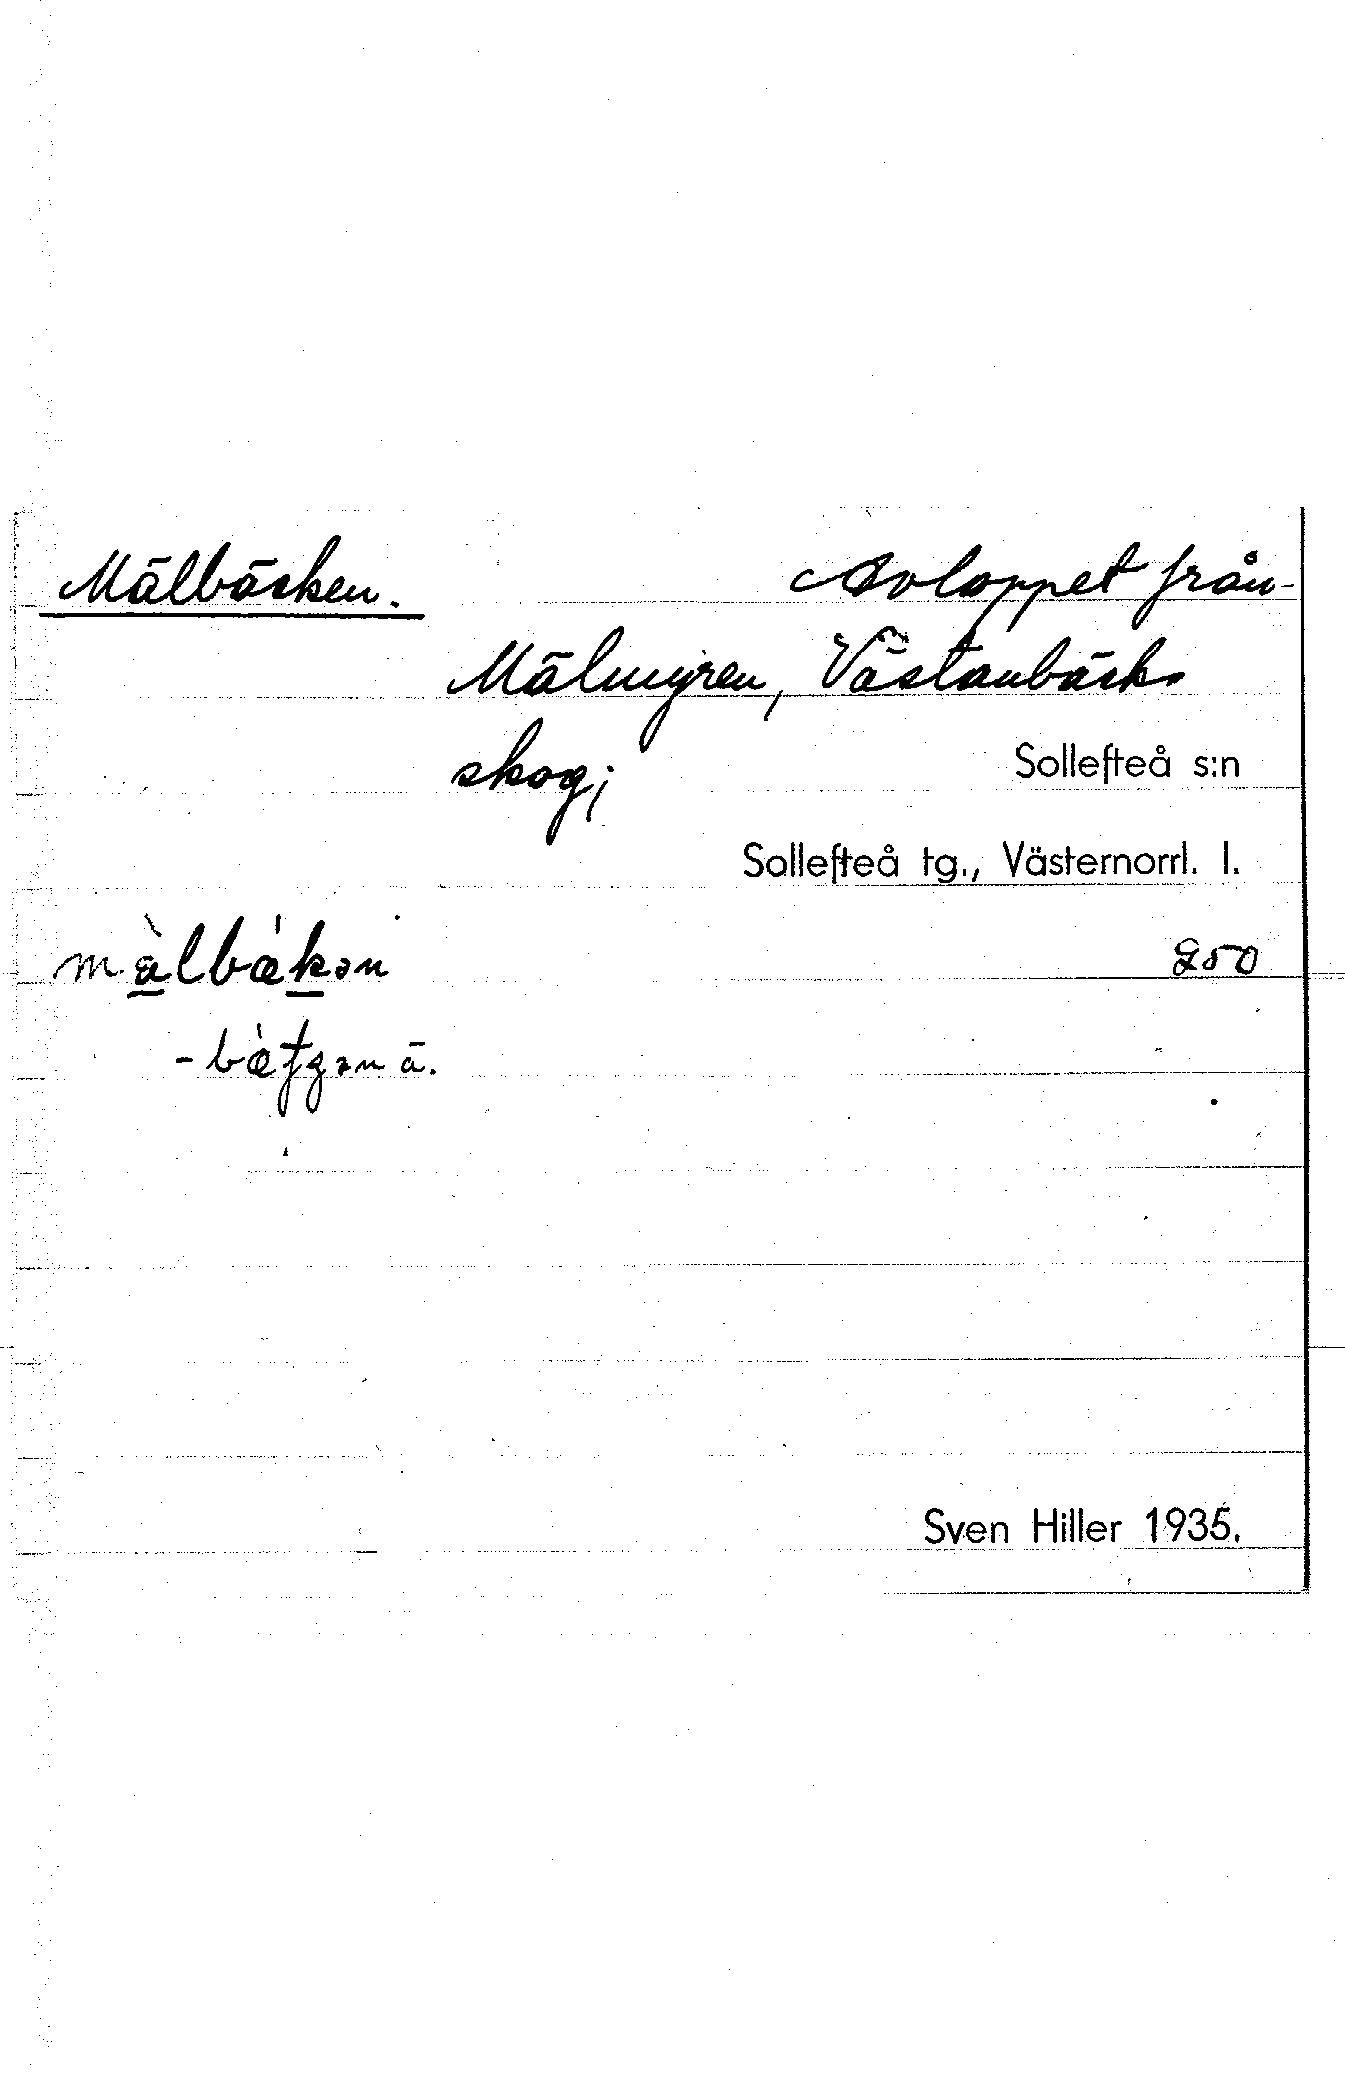 Mälbäcken. Avloppet från
Mälmyren, Västanbäcks
skog;
Sollefteå s:n
Sollefteå tg., Västernorrl. l.
màlbǽkən
250
Sven Hiller 1935.